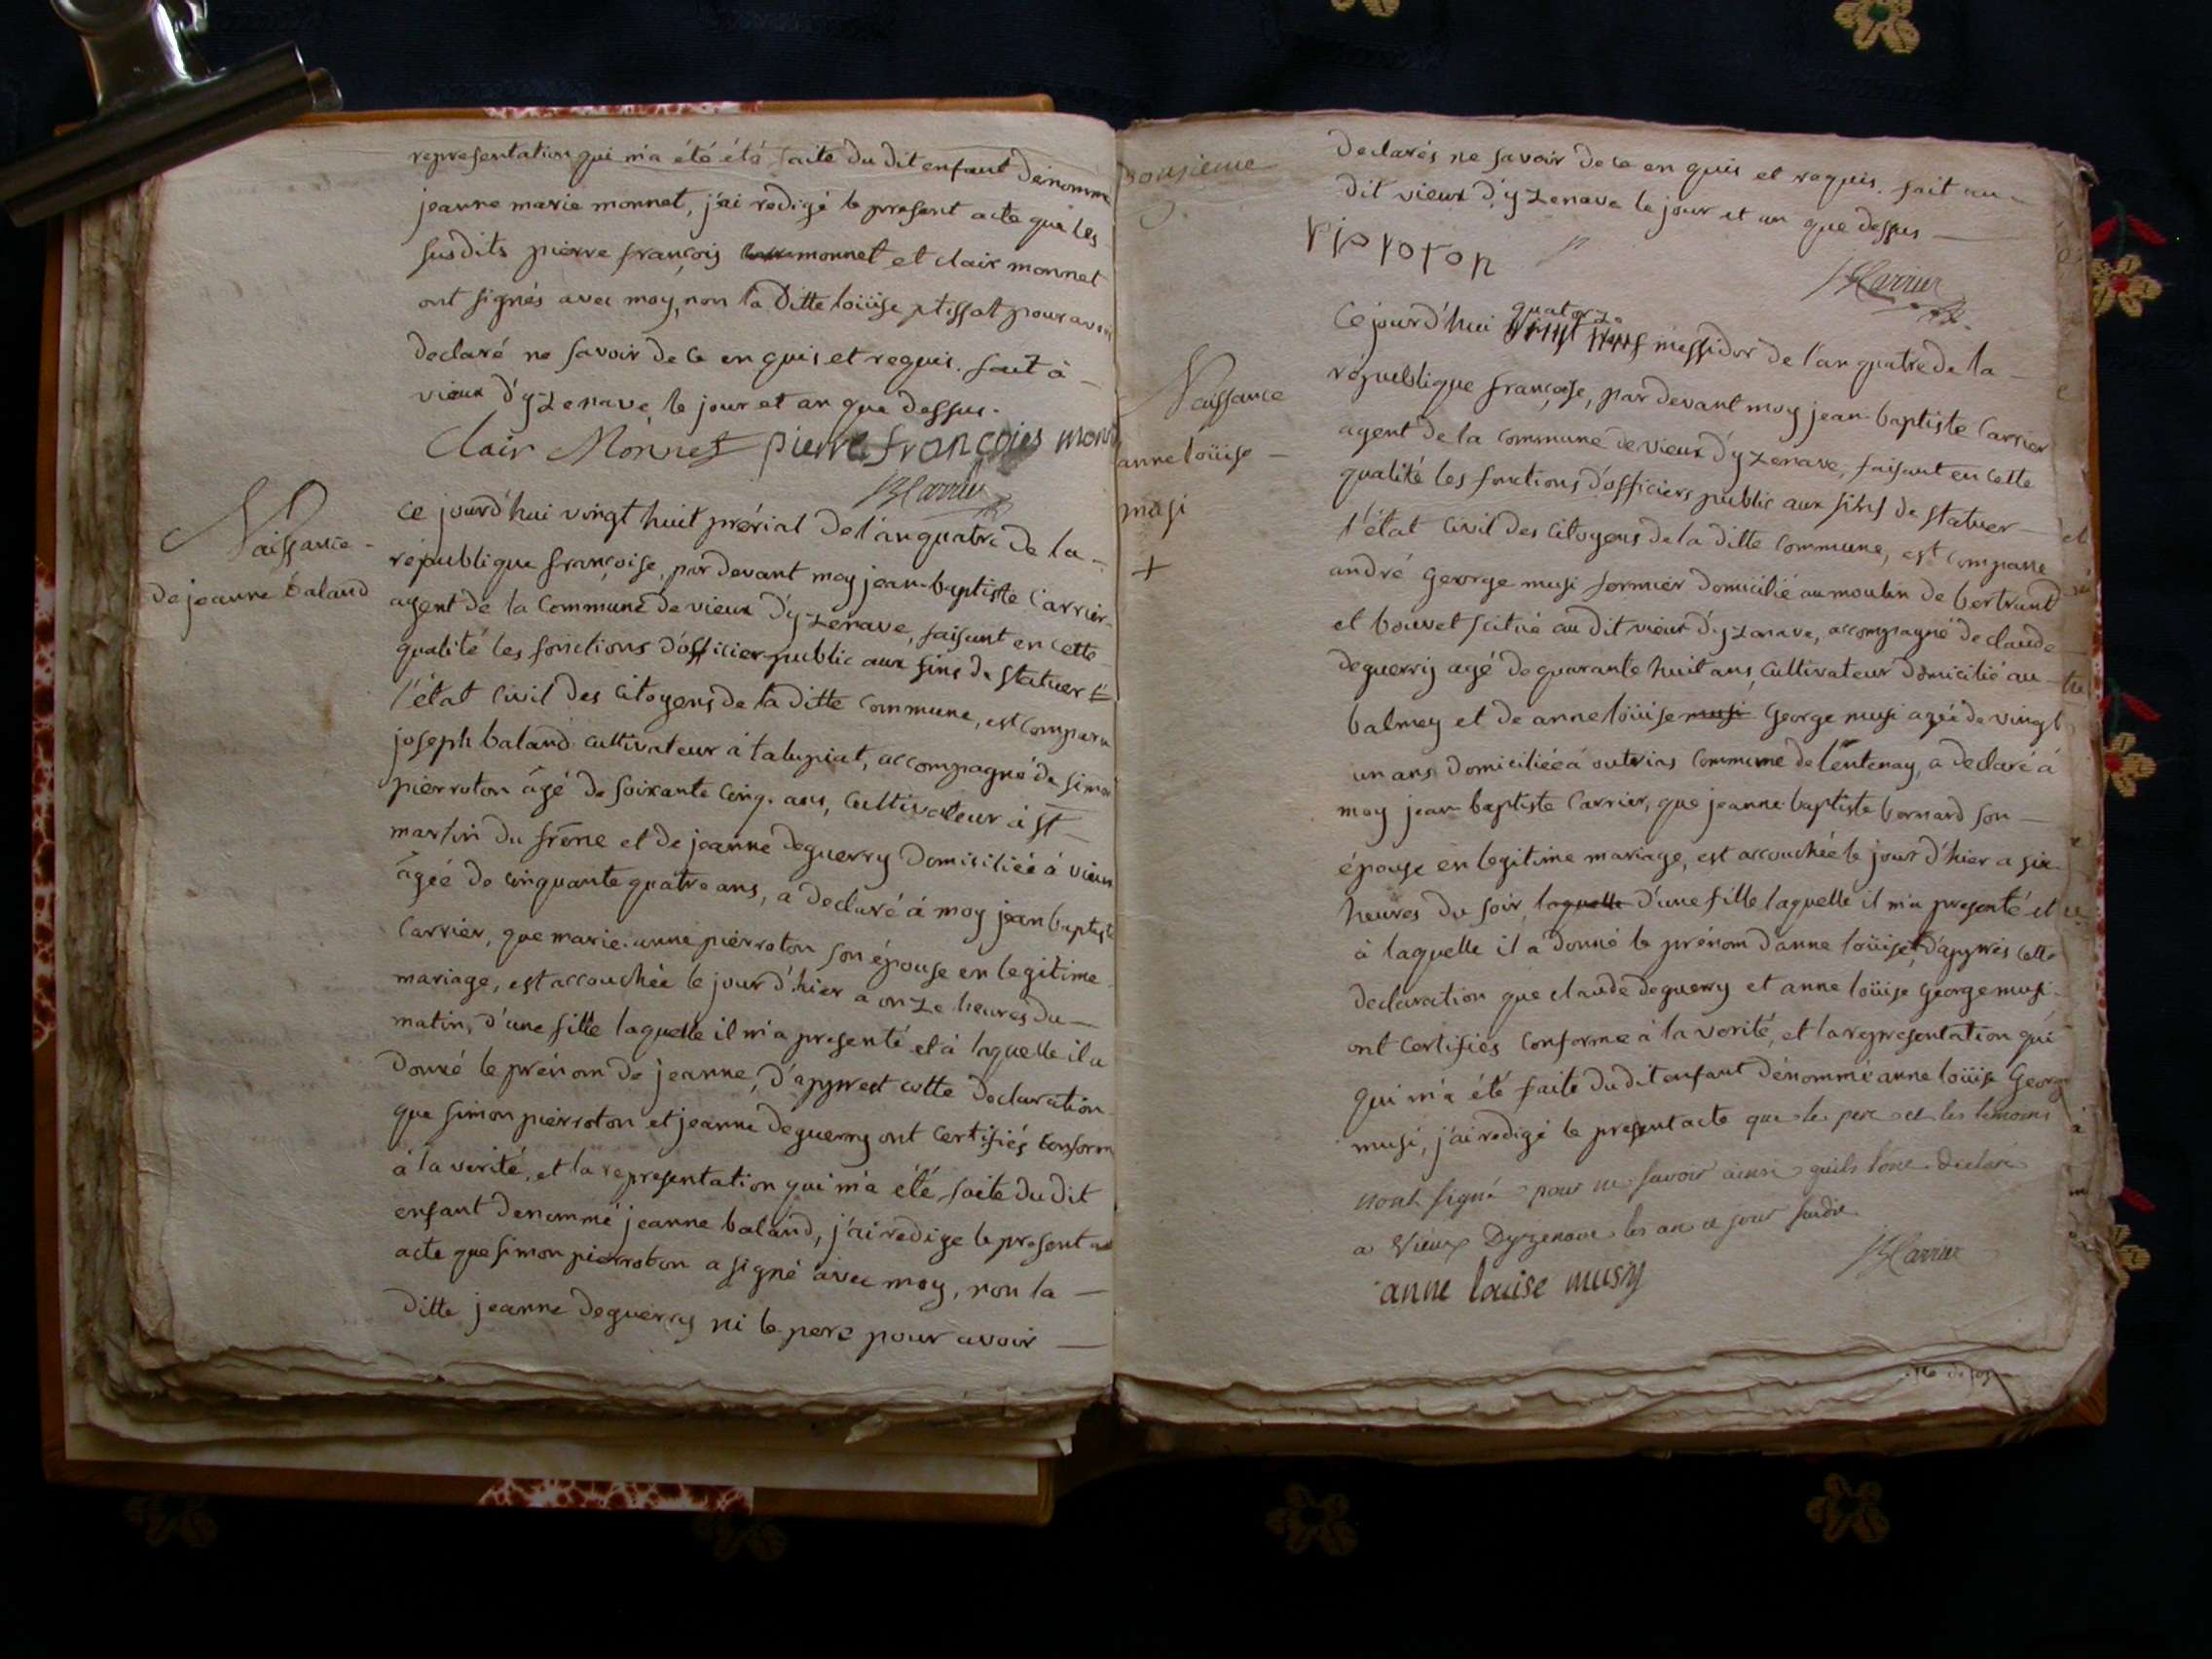 representation qui m'a été été faite du dit enfant denommé
jeanne marie monnet, j'ai redigé le present acte que les
susdits pierre françois monnet et clair monnet
ont signés avec moy, non la ditte loüise ptissat pour avoir
declaré ne savoir de ce enquis et requis. fait à
vieux d'yzenave le jour et an que dessus.
Clair Monnet pierre françois monn
JBCarrier
Naissance
de jeanne baland
ce jourd'hui vingt huit prérial de l'an quatre de la
république françoise, par devant moy jean-baptiste Carrier
agent de la Commune de vieux d'yzenave, faisant en cette
qualité les fonctions d'officier public aux fins de statuer
l'état civil des citoyens de la ditte commune, est comparu
joseph baland cultivateur à talupiat, accompagné de simon
pierroton âgé de soixante cinq ans, cultivateur à st
martin du frêne et de jeanne deguerry domiciliée à vieux
âgée de cinquante quatre ans, a declaré à moy jean baptiste
Carrier, que marie anne pierroton son épouse en legitime
mariage, est accouchée le jour d'hier a onze heures du
matin, d'une fille laquelle il m'a presenté et à laquelle il a
donné le prénom de jeanne, d'apprest cette declaration
que simon pierroton et jeanne deguerry ont certifiés conform
à la verité, et la representation qui m'a été faite du dit
enfant denommé jeanne baland, j'ai redigé le present
acte que simon pierroton a signé avec moy, non la
ditte jeanne deguerry ni le pere pour avoir
declarés ne savoir de ce enquis et requis. fait au
dit vieux d'yzenave le jour et an que dessus
JBCarrier
Naissance
anne loüise
musi
+
Ce jourd'hui quatorze messidor de l'an quatre de la
république françoise, par devant moy jean-baptiste Carrier
agent de la commune de vieux d'yzenave, faisant en cette
qualité les fonctions d'officiers public aux fins de statuer
l'état civil des citoyens de la ditte commune, est comparu
andré George musi fermier domicilié au moulin de bertrant
et bouvet scitué au dit vieux d'yzenave, accompagné de claude
deguerry agé de quarante huit ans, cultivateur domicilié au
balmey et de anne loüise musi George musi agée de vingt
un ans domiciliée à outrias commune de lentenay, a declaré à
moy jean baptiste Carrier, que jeanne baptiste bernard son
épouse en legitime mariage, est accouchée le jour d'hier a six
heures du soir, laquelle d'une fille laquelle il m'a presenté et
à laquelle il a donné le prénom d'anne loüise, d'apprès cette
declaration que claude deguerry et anne loüise George musi
ont certifiés conforme à la verité, et la representation qui
qui m'a été faite du dit enfant dénommé anne loüise George
musi, j'ai redigé le present acte que le pere et les temoins
nont signé pour ne savoir ainsi quils l'ont declaré
a Vieux Dyzenave les an et jour susdit
JBCarrier
anne louise musy